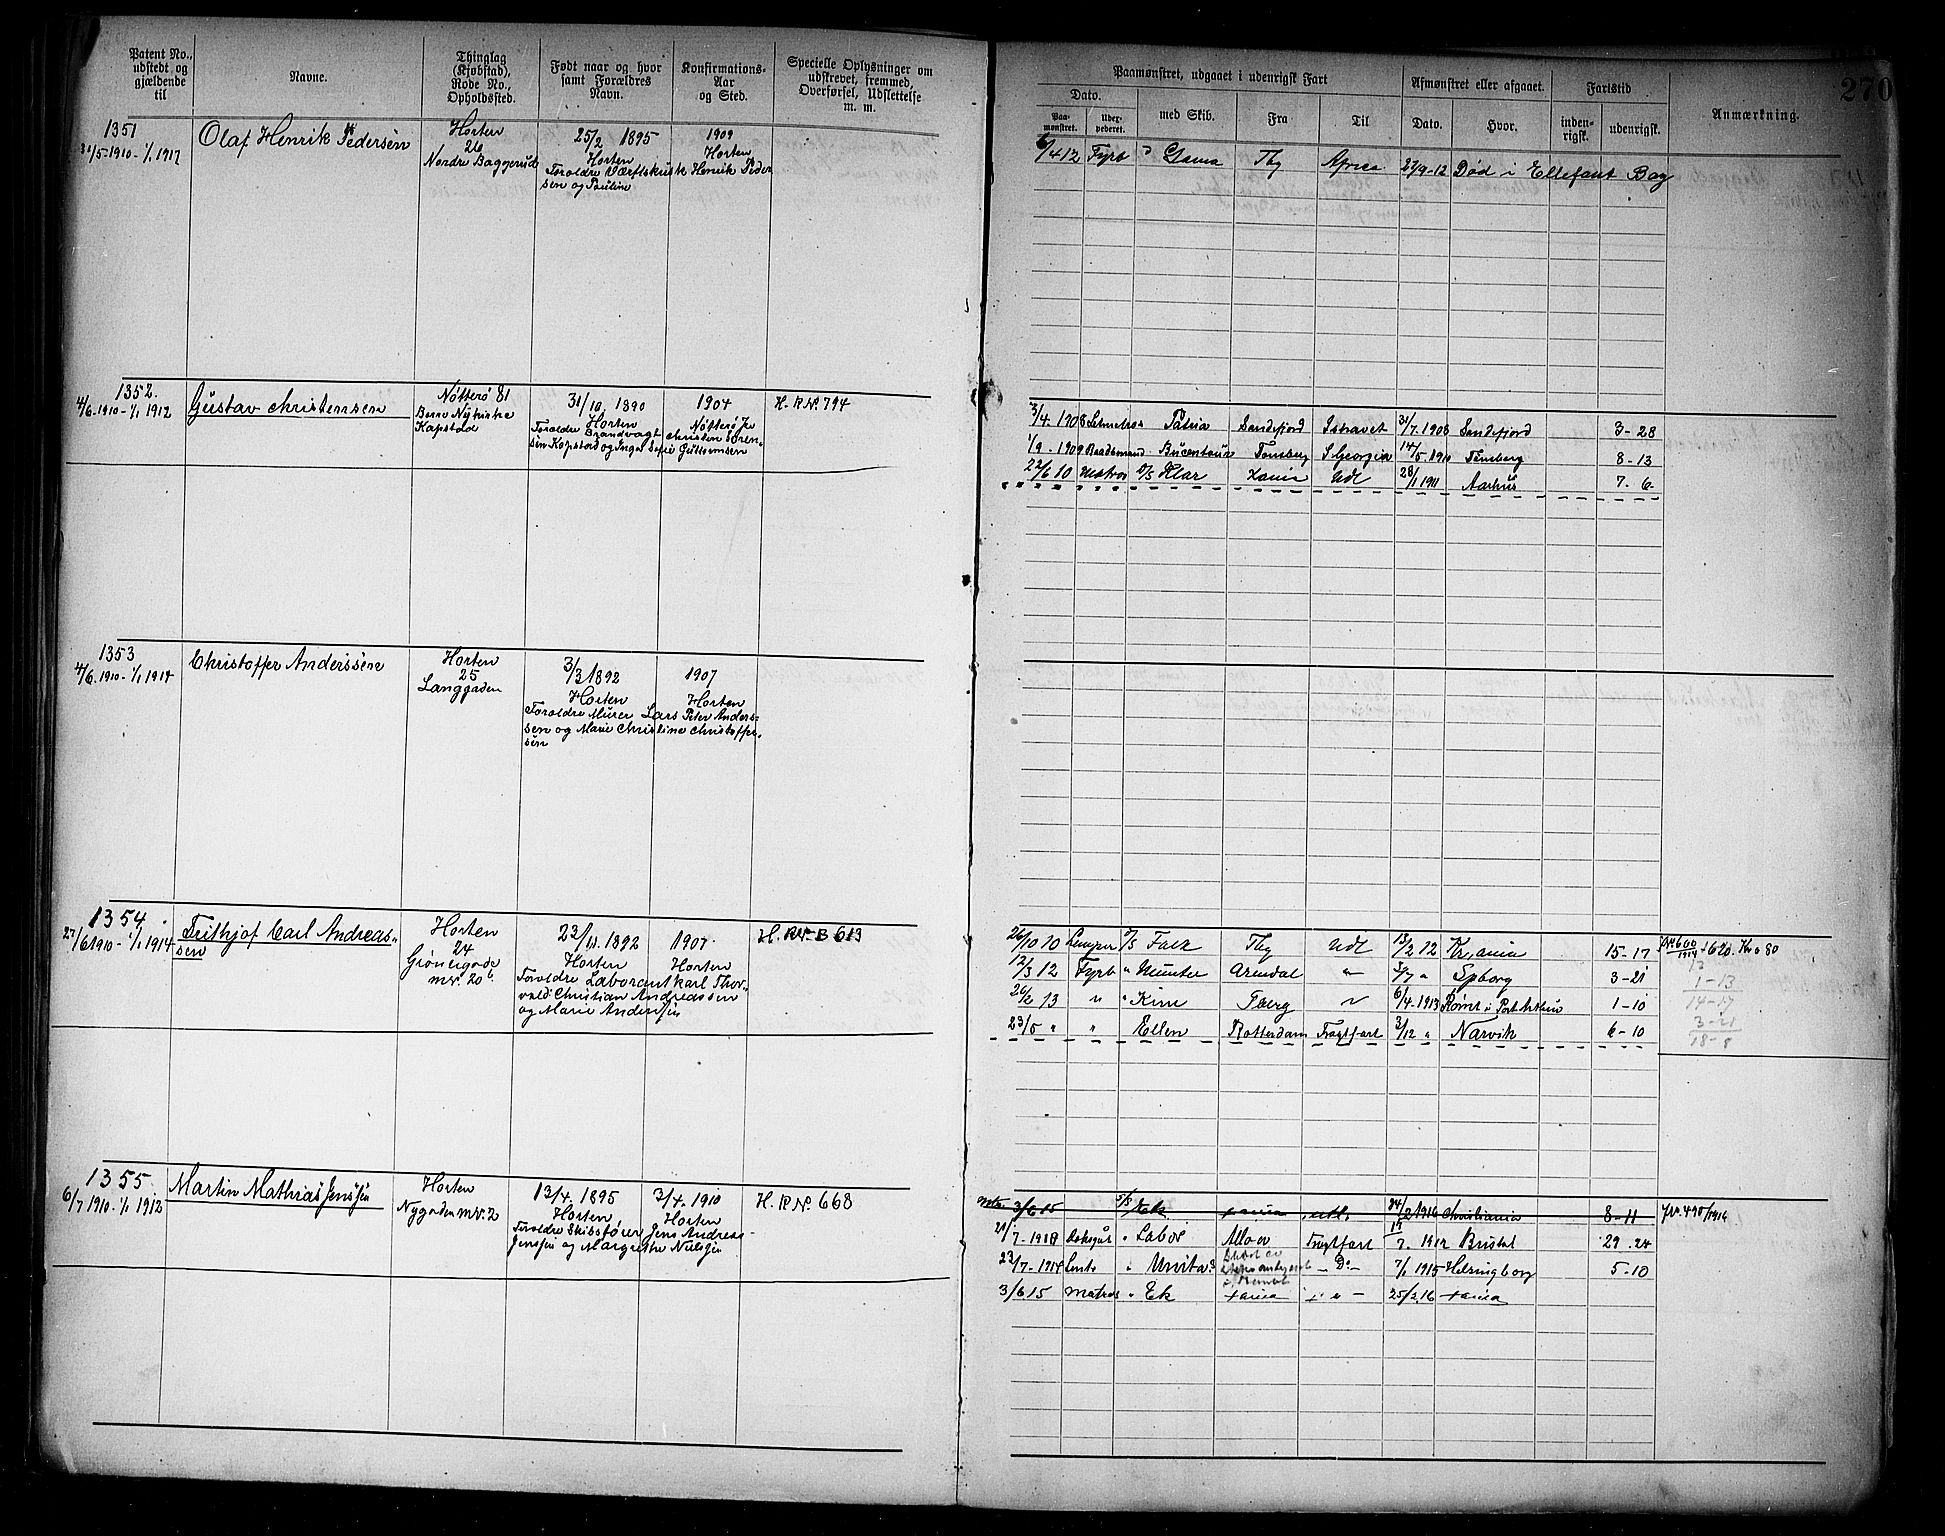 Patent No., udstedt og gjældende til
Navne.
Thinglag (Kjøbstad), Rode No., Opholdssted.
Født naar og hvor samt Forældres Navn.
Konfirmations-Aar og Sted.
Specielle Oplysninger om udskrevet, fremmed, Overførsel, Udslettelse m. m.
Paamønstret, udgaaet i udenrigsk Fart
Afmønstret eller afgaaet.
Fartstid
Anmærkning.
270
Dato.
Paamønstret.
med Skib.
Fra
Til
Dato.
Hvor.
indenrigsk.
udenrigsk.
1351
31/5-1910-1/1 1917
Olaf Henrik Pedersen
Horten
26
Nordre Baggerud
25/2 1895
Horten
1909
Horten
Forældre Værftskusk Henrik Peder
sen og Pauline
6/4 12 Fyrb Gama Tbg Africa 27/9-12 Død i Ellefant Bay
1352.
4/6-1910-1/1 1912
Gustav Christensen
Nøtterø 81
Kapstad
31/10. 1890
Horten
1904
Nøtterø
Foroldre Brandvagt Christen Soren-
sen Kapstad og Inger Sofie Guttormsen
H. R№ 794
3/4. 1908 Patria Sandefjord Ishavet 31/7. 1908 Sandefjord 3-28
1/9-1909 Baadsmand Bucentaur Tønsberg S Georgia 14/5. 1910 Tønsberg 8-13
22/6 10 Matros D/S Klar Xania Udl 28/1 1911 Aarhus 7. 6-
1353
4/6. 1910-1/1 1917
Christoffer Anderssen
Horten
25
Langgaden
3/3 1892
Horten
1907
Horten
Foroldre Murer Lars Peter Anders-
sen og Marie Christine Christoffer-
sen
1354
27/6 1910-1/1 1914
Frithjof Carl Andreas-
sen
Horten
24
Grønnegade
nr. 20b
23/11. 1892
Horten
1907
Horten
Foroldre Laborant Karl Thor-
vald Christian Andreassen
og Marie Anderssen
H. R№ B 613
26/10 10 Lemper D/S Falk Tbg Udl 13/2 12 Kr.ania 15-17
12/3 12 Fyrb " Munter Arendal " 3/7 " Esbjerg 3-21
26/2 13 " " Kim Tberg " 6/4. 1913 Rømt i Port Arthur 1-10
23/5 " " Ellen Rotterdam Fragtfart 3/12 " Narvik 6-10
1-13
14-17
3-21
18-8
1355
6/7 1910-1/1 1912
Martin Mathias Jenssen
Horten
Nygaden nr. 2
13/4. 1895
Horten
3/4. 1910
Horten
Foroldre Skibsfører Jens Andreas
Jenssen og Margrethe Nielssen
H. R№. 668
3/6 15 S/S Ek Xania udl. 24/2 1916 Christiania 8-11 Jr. 490/1916
21/7-1910 Labor Alloa Fragtfart Bristol 29. 24
23/7-1914 " Unita - Do - 7/1 1915 Helsingborg 5-10
3/6 15 Matros " Ek Xania 25/2.16 Xania